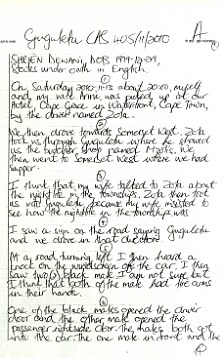 Gugulethu CAS 405/11/2010 A
SHRIEN DEWANI, DOB 1979-12-29,
states under oath in English.
1
On Saturday 2010-11-13 about 20:00, myself
and my wife Anni, was picked up at our
Hotel, Cape Grace in Waterfront, Cape Town,
by the driver named Zola.
2
We then drove towards Somerset West. Zola
took us through Gugulethu where he showed
us the butcher shop named Mzolis. We
then went to Somerset West where we had
supper.
3
I think that my wife talked to Zola about
the nightlife in the townships. Zola then took
us was Gugulethu because my wife wished to
see how the nightlife in the township was
4
I saw a sign on the road saying Gugulethu
and we drove in that direction.
5
In a road turning left I then heard a
knock on the of the car. I then
saw two black male. I am not sure but
I think that both of the male had fire arms
in their hand.
6
One of the black males opened the driver
door and the other male opened the
passenger door. The males both got
into the car. The one male in front and the